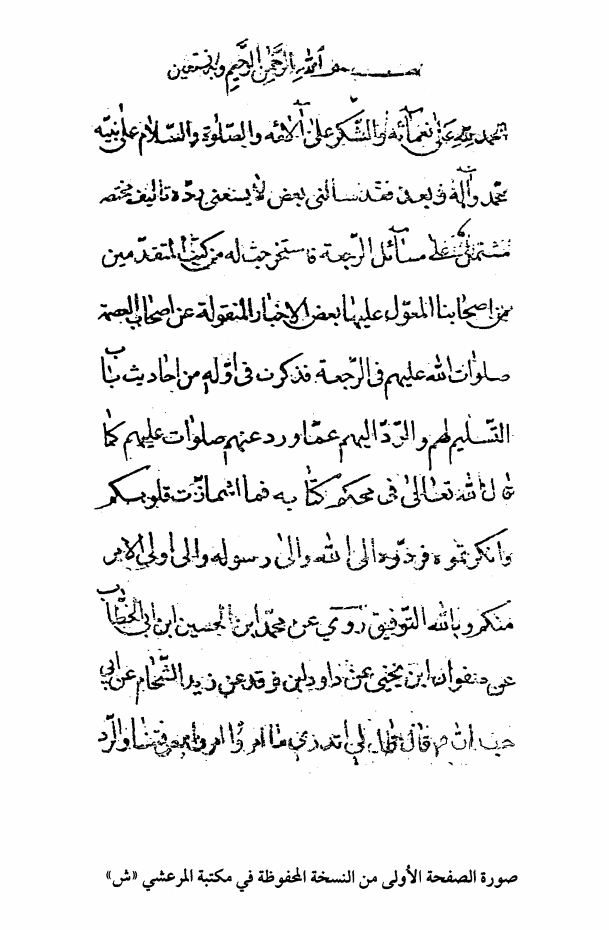 بسم الله الرحمن الرحيم وبه نستعين
الحمد لله على نعمائه والشكر على آلائه والصلوة والسلام على نبيه
محمد وآله وبعد فقد سالنى بعض لا يسعنى ردّه تاليف مختصر
مشتمل على مسائل الرّجعة فاستخرجت له من كتب المتقدّمين
من اصحابنا المعوّل عليها بعض الاخبار المنقولة عن اصحاب العصمة
صلوات الله عليهم فى الرّجعة فذكرت فى اوّله من احاديث باب
التّسليم لهم والرّدّ اليهم عمّا ورد عنهم صلوات عليهم كما
قال الله تعالى فى محكم كتابه فما اشمازّت قلوبكم
وانكرتموه فردّوه الى الله والى رسوله والى اولى الامر
منكم وبالله التّوفيق روى عن محمّد ابن الحسين ابن ابى الخطّاب
عن صفوان ابن يحيى عن داود ابن فرقد عن زيد الشّحّام عن ابي
قال قال لي اتدري ما امروا امروا بمعرفتنا والرّد
صورة الصفحة الأولى من النسخة المحفوظة في مكتبة المرعشي «ش»